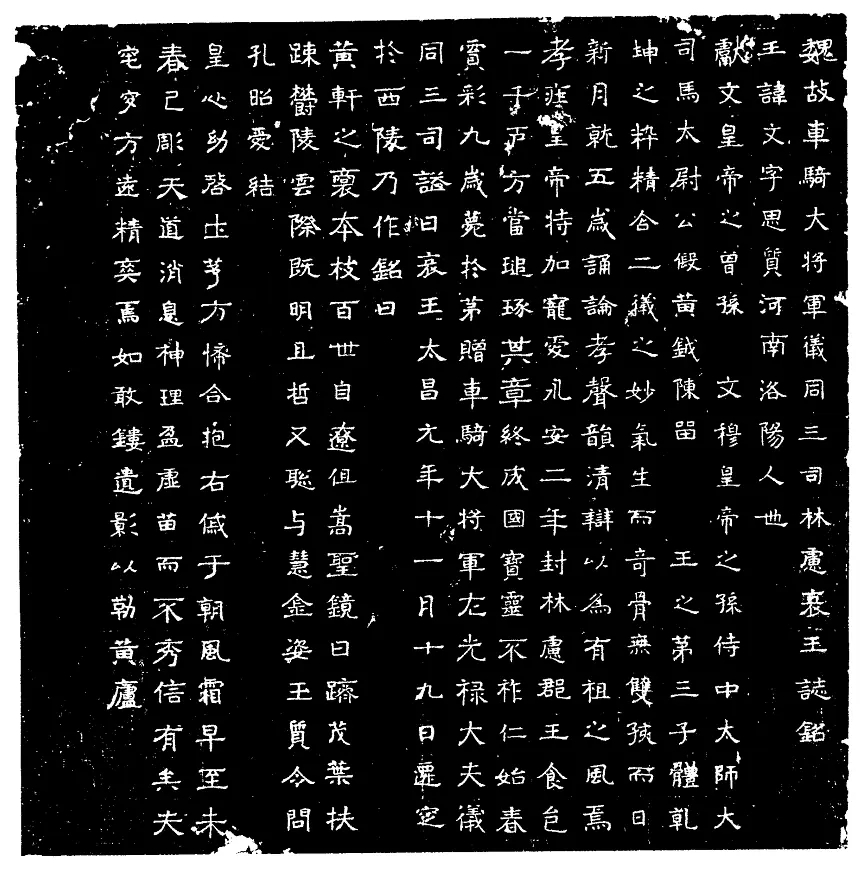 魏故車騎大將軍儀同三司林慮哀王誌銘
王諱文字思質河南洛陽人也
獻文皇帝之曾孫 文穆皇帝之孫侍中太師大
司馬太尉公假黃鉞陳留 王之第三子體乹
坤之粹精合二儀之妙氣生而奇骨無雙孩而日
新月就五歲誦論孝聲韻清辯以為有祖之風焉
孝莊皇帝特加寵愛永安二年封林慮郡王食邑
一千戶方當琩琢其章終成國寶靈不祚仁始春
賓彩九歲薨於第贈車騎大將軍左光祿大夫儀
同三司謚曰哀王太昌元年十一月十九日遷窆
於西陵乃作銘曰
黃軒之裔本枝百世自遼徂嵩聖鏡日躋茂葉扶
疎欝陵雲際既明且哲又聡与慧金姿玉質令問
孔昭愛結
皇心幼啓土茅方憘合抱右戚于朝風霜早至未
春已彫天道消息神理盈虛苗而不秀信有矣夫
窀穸方遠精爽焉如敢鏤遺影以勒黃廬